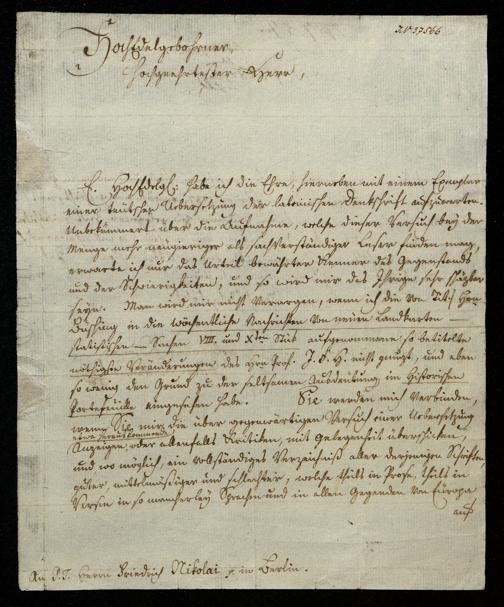 I.N. 37566
HochEdelgebohrner,
Hochgeehrtester Herr,
E. HochEdelgb: habe ich die Ehre, hierneben mit einem Exemplar
einer teutschen Uebersetzung der lateinischen Denkschrift aufzuwarten.
Unbekümmert über die Aufnahme, welche dieser Versuch bey der
Menge mehr neugieriger als sachverständiger Leser finden mag,
erwarte ich nur das Urteil bewährter Kenner des Gegenstands
und der Schwierigkeiten, und so wird mir das Ihrige sehr schäzbar
seyn. Man wird mir nicht verargen, wenn ich die von Herrn
Büsching in die wöchentliche Nachrichten von neuen Landkarten –
statistischen – Sachen VIII. und Xten Stück aufgenommene so betitelte
nöthigste Veränderungen des Hrn Prof. J. d. H. nicht genuzt, und eben
so wenig den Grund zu der seltsamen Ausdeutung im Historischen
Portefeuille eingesehen habe. Sie werden mich verbinden,
wenn Sie mir die über gegenwärtigen Versuch einer Uebersetzung
etwa herauskommende
Anzeigen, oder allenfalls Kritiken, mit Gelegenheit überschicken,
und wo möglich, ein vollständiges Verzeichniß aller derjenigen Schriften,
guter, mittelmäsiger und schlechter, welche theils in Prose, theils in
Versen in so mancherley Sprachen und in allen Gegenden von Europa
auf
An Herrn Friedrich Nikolai in Berlin.